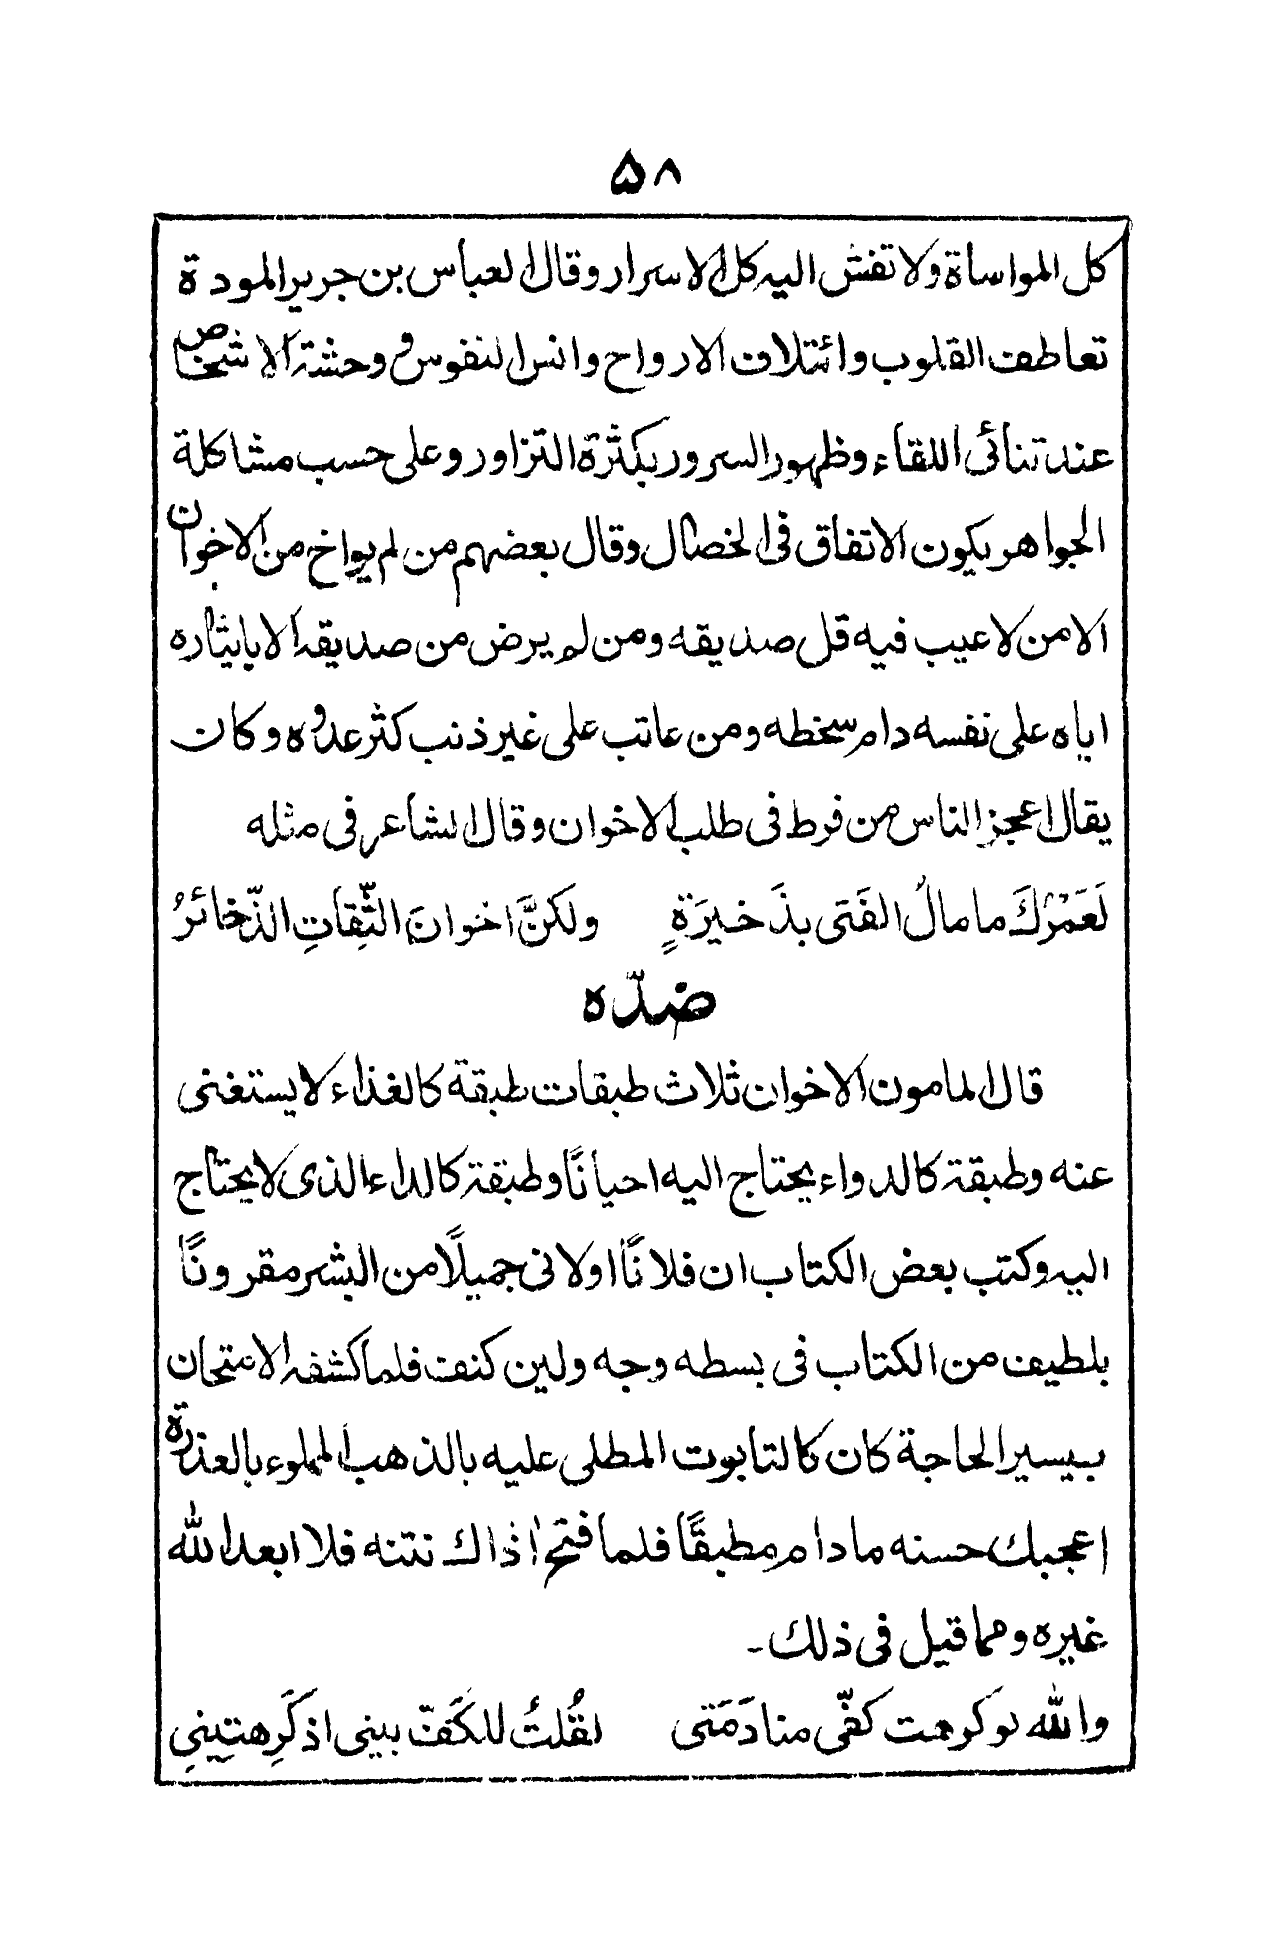 ۵۸
كل المواساة ولا تفش اليه كل الاسرار وقال العباس بن جرير المودة
تعاطف القلوب وائتلاف الارواح وانس النفوس و وحشة الاشخاص
عند تنائى اللقاء وظهور السرور بكثرة التزاور وعلى حسب مشاكلة
الجواهر يكون الاتفاق فى الخصال وقال بعضهم من لم يواخ من الاخوان
الا من لا عيب فيه قل صديقه ومن لم يرض من صديقه الا بايثاره
اياه على نفسه دام سخطه ومن عاتب على غير ذنب كثر عدوه وكان
يقال اعجز الناس من فرط فى طلب الاخوان وقال الشاعر فى مثله
لَعَمْرُكَ ما مالُ الفَتى بذَخيرَةٍ ولكنَّ اخوانَ الثِّقاتِ الذّخائرُ
ضدّه
قال المامون الاخوان ثلاث طبقات طبقة كالغذاء لا يستغنى
عنه وطبقة كالدواء يحتاج اليه احيانًا وطبقة كالداء الذى لا يحتاج
اليه وكتب بعض الكتاب ان فلانًا اولانى جميلًا من البشر مقرونًا
بلطيف من الكتاب فى بسطه وجه ولين كنف فلما كشفه الامتحان
بيسير الحاجة كان كالتابوت المطلى عليه بالذهب المملوء بالعذرة
اعجبك حسنه مادام مطبقًا فلما فتح اذاك نتنه فلا ابعد الله
غيره ومما قيل فى ذلك ـ
والله لو كرهت كفّى منادَمَتى لقُلتُ للكَفّ بينى اذ كَرِهتِينِي